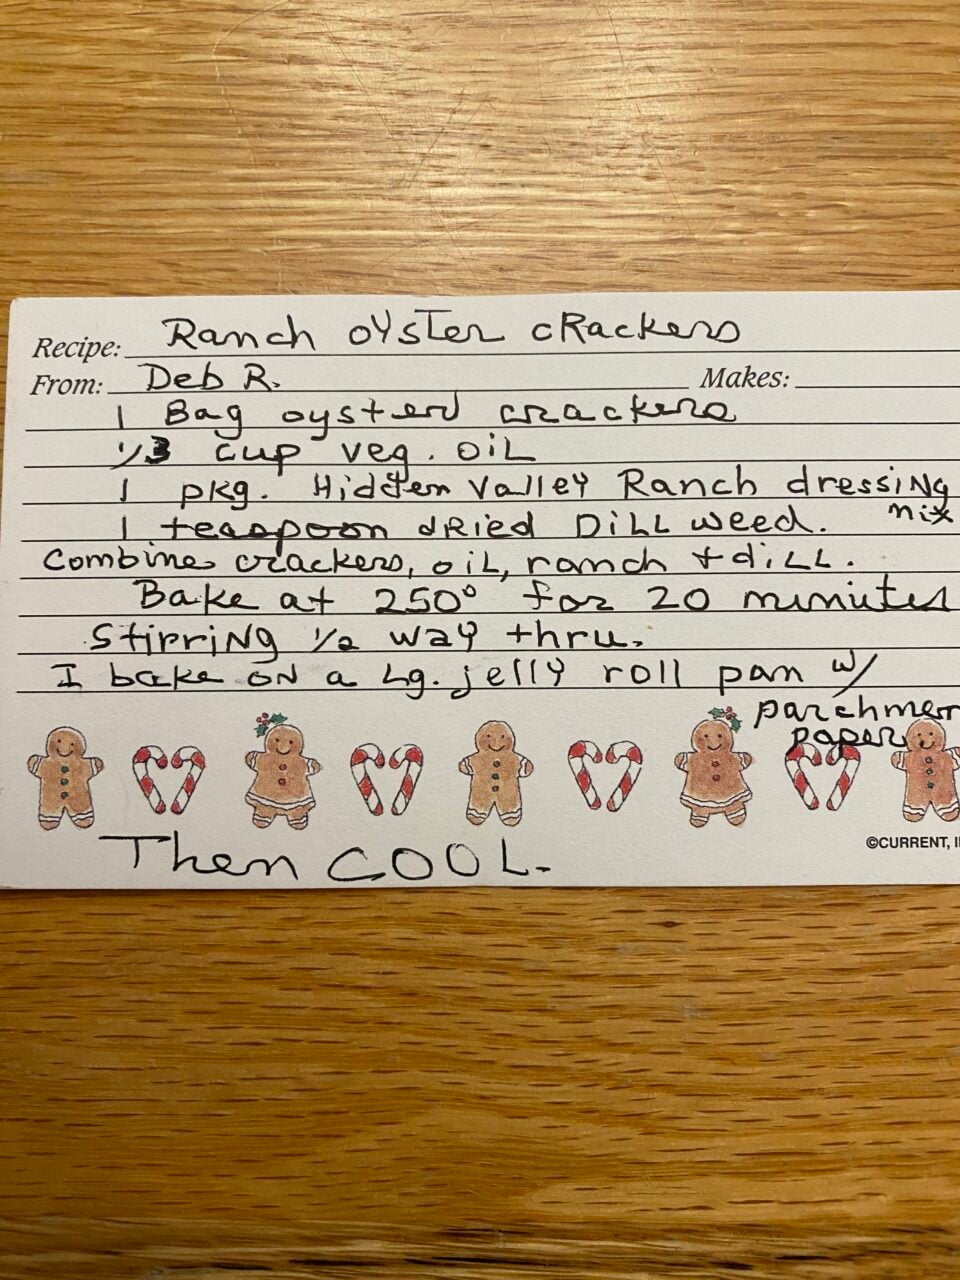 Recipe: Ranch oyster crackers
From: Deb R. Makes:
1 Bag oyster crackers
1/3 cup veg. oil
1 pkg. Hidden Valley Ranch dressing mix
1 teaspoon dried Dill weed.
Combine crackers, oil, ranch + dill.
Bake at 250° for 20 minutes
Stirring 1/2 way thru.
I bake on a Lg. jelly roll pan w/
parchmen
paper
©CURRENT, I
Then COOL.